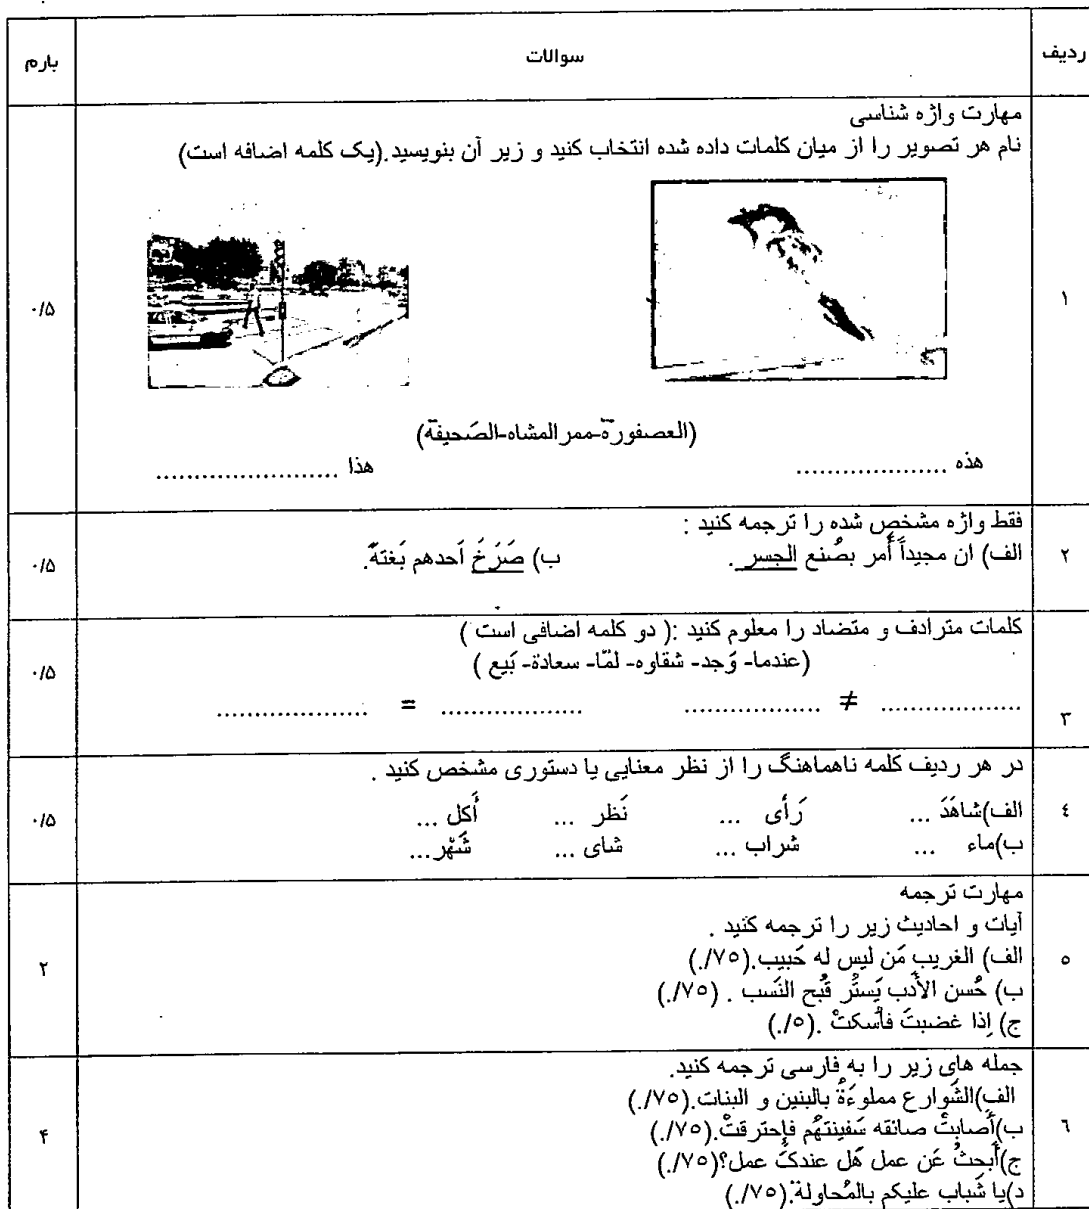 ردیف سوالات بارم
مهارت واژه شناسی
نام هر تصویر را از میان کلمات داده شده انتخاب کنید و زیر آن بنویسید.(یک کلمه اضافه است)
۱ ۰/۵
(العصفورة-ممر المشاه-الصَحیفة)
هذه .................... هذا ........................
فقط واژه مشخص شده را ترجمه کنید :
۲ الف) ان مجیداً أمر بصُنع الجسر . ب) صَرَخَ اَحدهم بَغتةً. ۰/۵
کلمات مترادف و متضاد را معلوم کنید :( دو کلمه اضافی است )
(عندما- وَجد- شقاوه- لمّا- سعادة- بَیع ) ۰/۵
۳ ................... ≠ .................. ................... = ....................
در هر ردیف کلمه ناهماهنگ را از نظر معنایی یا دستوری مشخص کنید .
٤ الف)شاهَدَ ... رَأی ... نَظر ... أَکل ... ۰/۵
ب)ماء ... شراب ... شای ... شَهْر...
مهارت ترجمه
آیات و احادیث زیر را ترجمه کنید .
٥ الف) الغریب مَن لیس له حَبیب.(۷٥/.) ۲
ب) حُسن الأَدب یَستُر قُبح النَسب . (۷٥/.)
ج) إذا غضبتَ فأسکتْ .(٥/.)
جمله های زیر را به فارسی ترجمه کنید.
الف)الشَوارع مملوءَةٌ بالبنین و البنات.(۷٥/.)
٦ ب)أَصابتْ صانقه سَفینتهُم فإحترقتْ.(۷٥/.) ۴
ج)أبحثُ عَن عمل هَل عندکَ عمل؟(۷٥/.)
د)یا شَباب علیکم بالمُحاولة.(۷٥/.)